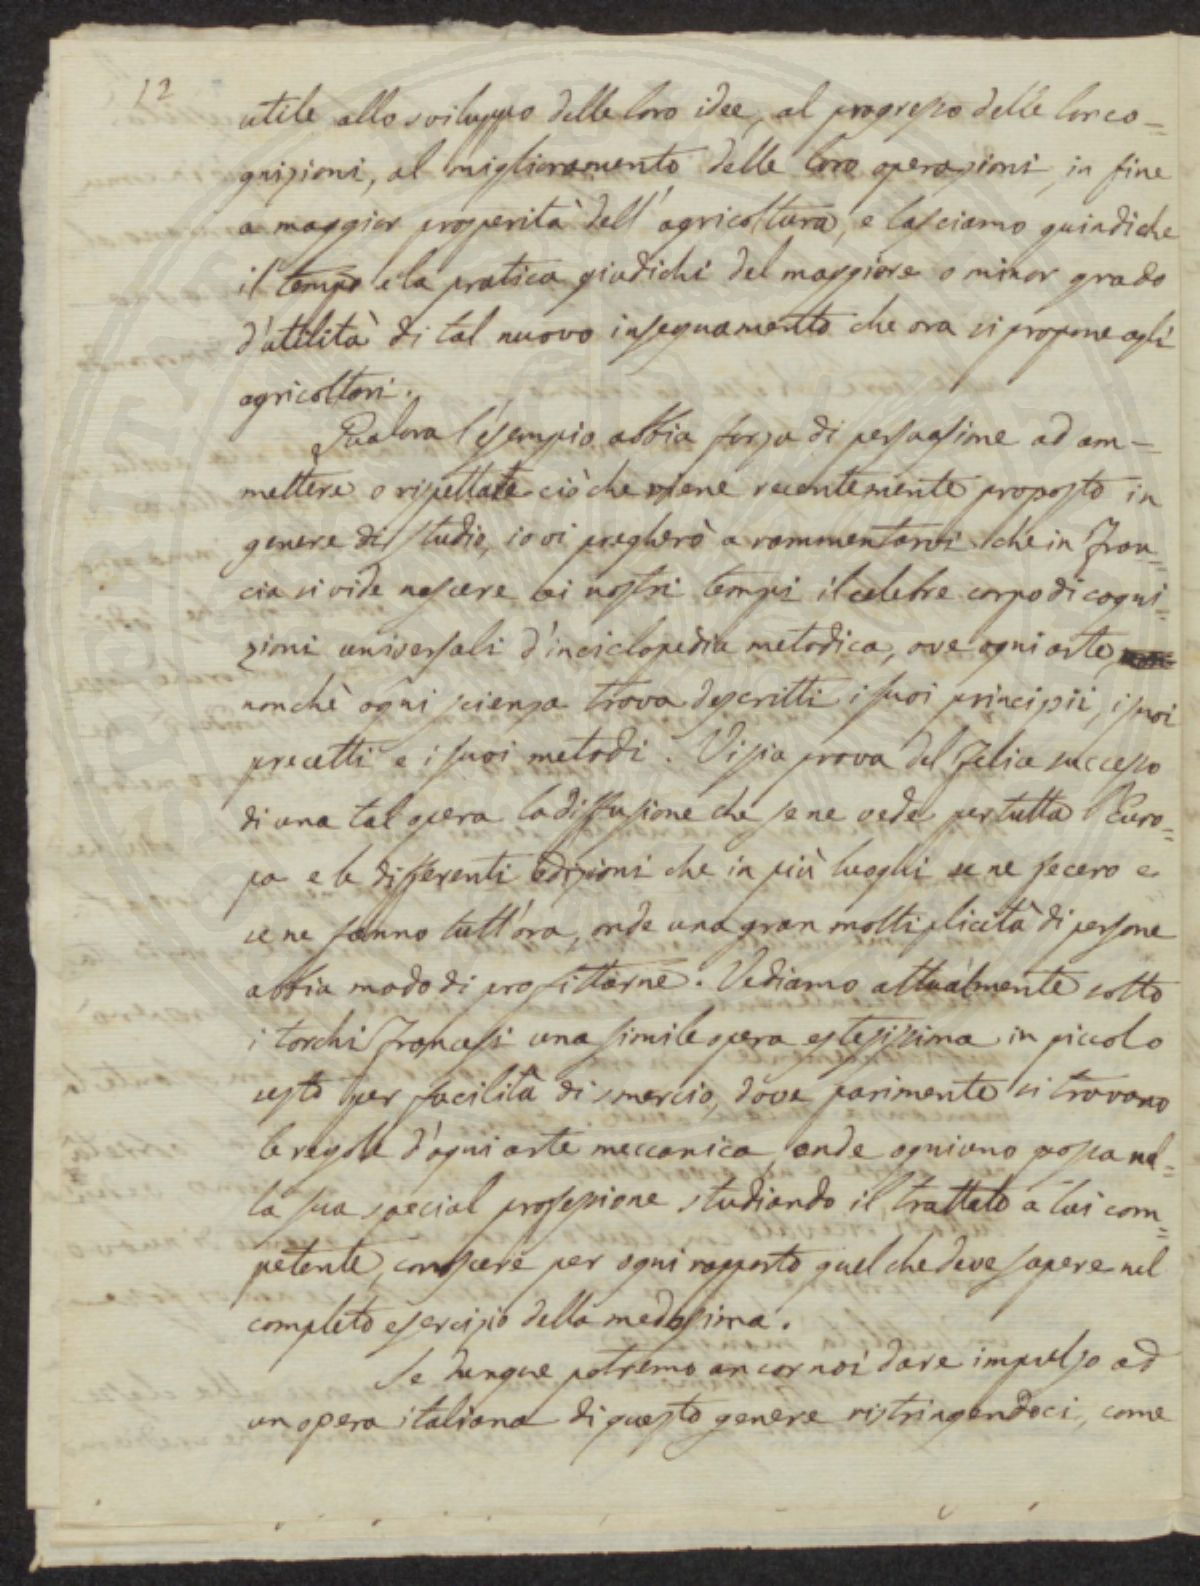 12
utile allo sviluppo delle loro idee, al progresso delle lor co=
gnizioni, al miglioramento delle loro operazioni, in fine
a maggior prosperità dell'agricoltura, e lasciamo quindi che
il tempo e la pratica giudichi del maggiore o minor grado
d'utilità di tal nuovo insegnamento che ora si propone agli
agricoltori.
Qualora l'esempio abbia forza di persuasione ad am=
mettere o rispettare ciò che viene recentemente proposto in
genere di studio, io vi pregherò a rammentarvi che in Fran=
cia si vide nascere ai nostri tempi il celebre corpo di cogni=
zioni universali d'inciclopedia metodica, ove ogni arte,
nonchè ogni scienza trova descritti i suoi principii, i suoi
precetti e i suoi metodi. Vi sia prova del felice successo
di una tal opera la diffusione che se ne vede per tutta l'Euro=
pa e le differenti edizioni che in più luoghi se ne fecero e
se ne fanno tutt'ora, onde una gran moltiplicità di persone
abbia modo di profittarne. Vediamo attualmente sotto
i torchi francesi una simile opera estesissima in piccolo
sesto per facilità di smercio, dove parimente si trovano
le regole d'ogni arte meccanica, onde ogniuno possa nel=
la sua special professione studiando il trattato a lui com=
petente, conoscere per ogni rapporto quel che deve sapere nel
completo esercizio della medesima.
Se dunque potremo ancor noi dare impulso ad
un opera italiana di questo genere ristringendoci, come